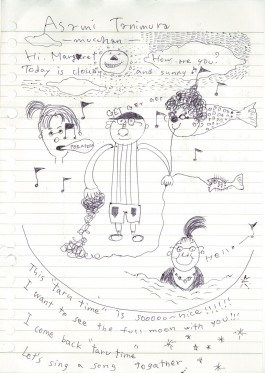 Asami Tanimura
mucchan
Hi, Margaret
How are you?
Today is cloudy and sunny
GET GET GET
Hello
This "taru time" is sooooo~nice!!!!!!
I want to see the full moon with you!!!
I come back "taru time"
Let's sing a song together